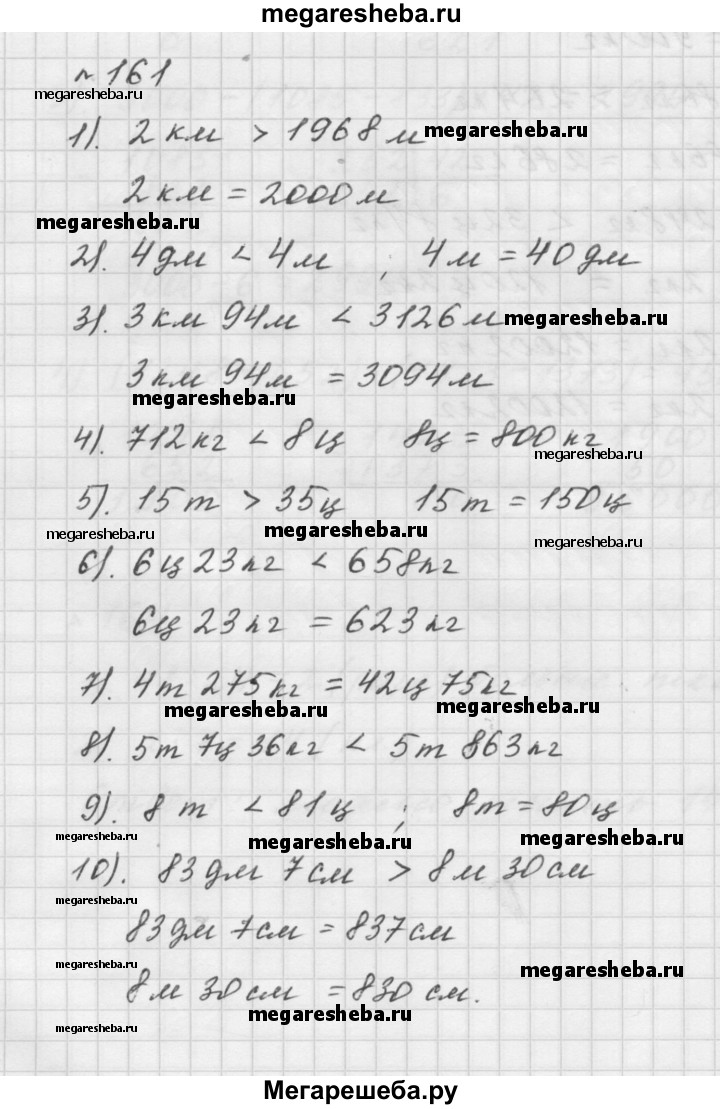 megaresheba.ru
№ 161
megaresheba.ru
1). 2 км > 1968 м megaresheba.ru
2 км = 2000 м
megaresheba.ru
2). 4 дм < 4 м ; 4 м = 40 дм
3). 3 км 94 м < 3126 м megaresheba.ru
3 км 94 м = 3094 м
megaresheba.ru
4). 712 кг < 8 ц 8 ц = 800 кг
megaresheba.ru
5). 15 т > 35 ц 15 т = 150 ц
megaresheba.ru megaresheba.ru megaresheba.ru
6). 6 ц 23 кг < 658 кг
6 ц 23 кг = 623 кг
7). 4 т 275 кг = 42 ц 75 кг
megaresheba.ru megaresheba.ru
8). 5 т 7 ц 36 кг < 5 т 863 кг
9). 8 т < 81 ц ; 8 т = 80 ц
megaresheba.ru megaresheba.ru megaresheba.ru
10). 83 дм 7 см > 8 м 30 см
megaresheba.ru
83 дм 7 см = 837 см
megaresheba.ru megaresheba.ru
8 м 30 см = 830 см.
megaresheba.ru megaresheba.ru
Мегарешеба.ру